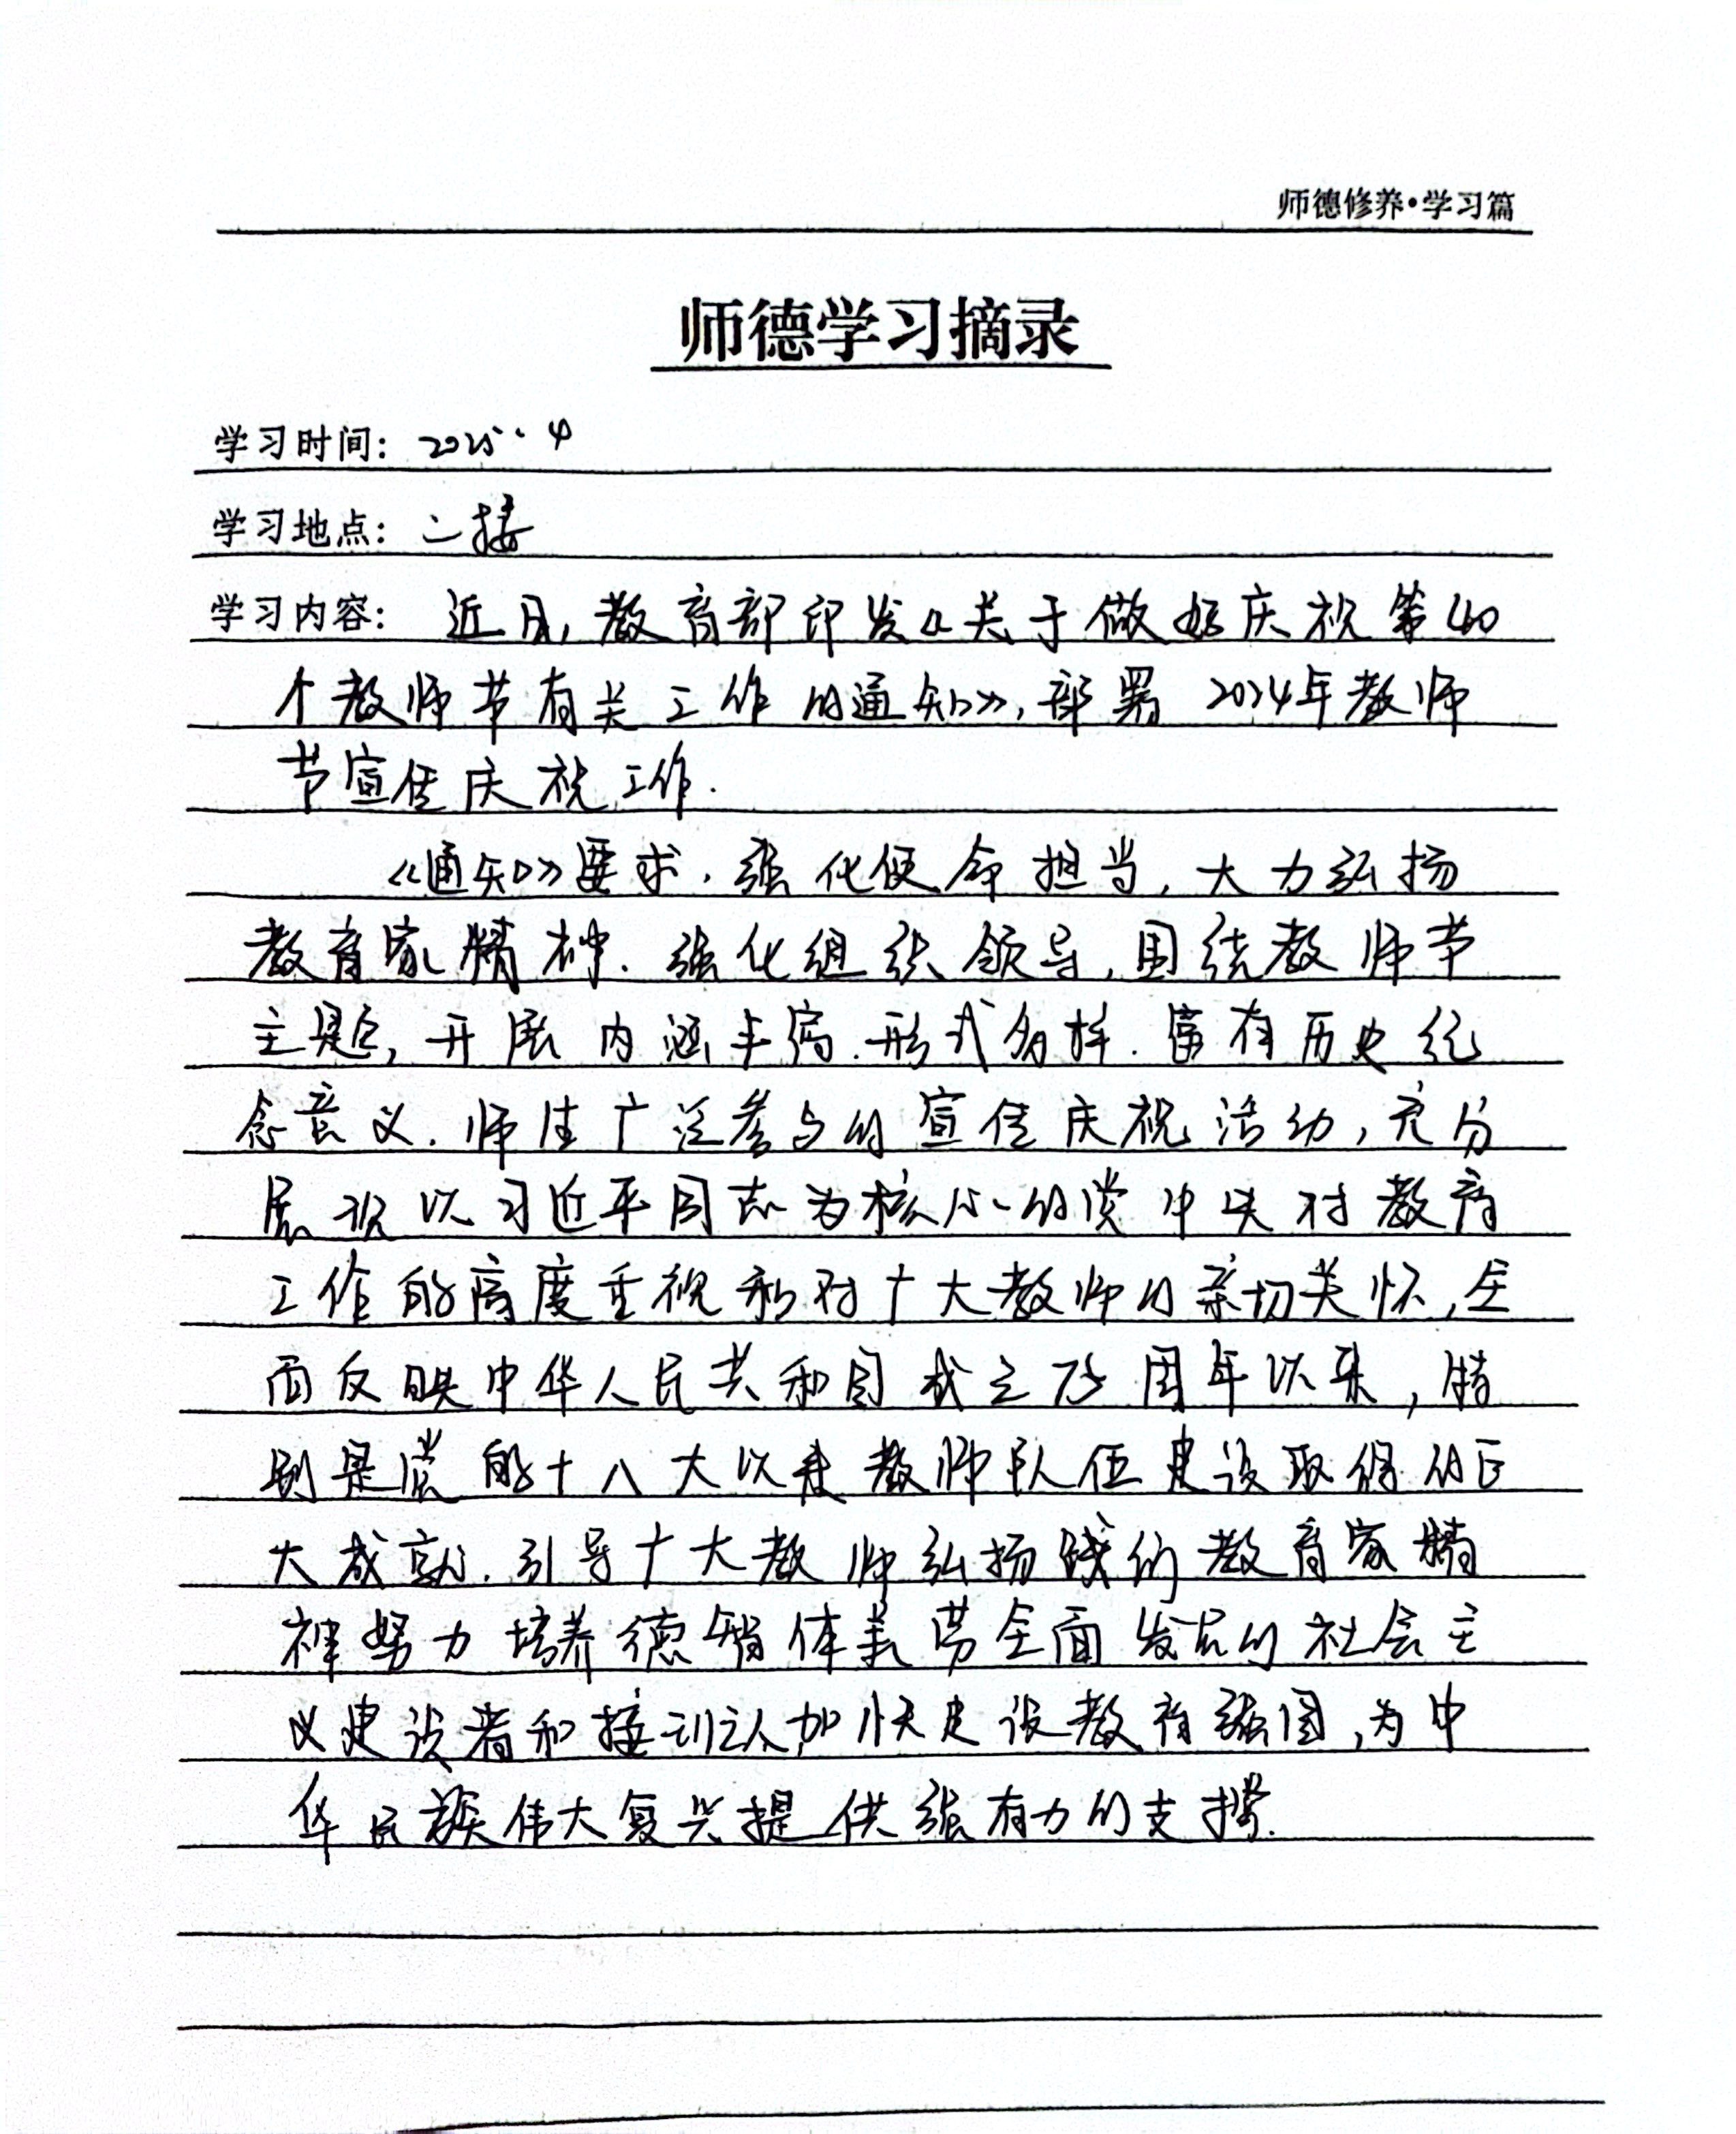 师德修养·学习篇
师德学习摘录
学习时间: 2025.4
学习地点: 二楼
学习内容: 近日,教育部印发《关于做好庆祝第40
个教师节有关工作的通知》,部署 2024年教师
节宣传庆祝工作.
《通知》要求,强化使命担当,大力弘扬
教育家精神.强化组织领导,围绕教师节
主题,开展内涵丰富.形式多样.富有历史纪
念意义.师生广泛参与的宣传庆祝活动,充分
展现以习近平同志为核心的党中央对教育
工作的高度重视和对广大教师的亲切关怀,全
面反映中华人民共和国成立75周年以来,特
别是党的十八大以来教师队伍建设取得的巨
大成就.引导广大教师弘扬践行教育家精
神努力培养德智体美劳全面发展的社会主
义建设者和接班人,加快建设教育强国,为中
华民族伟大复兴提供强有力的支撑.